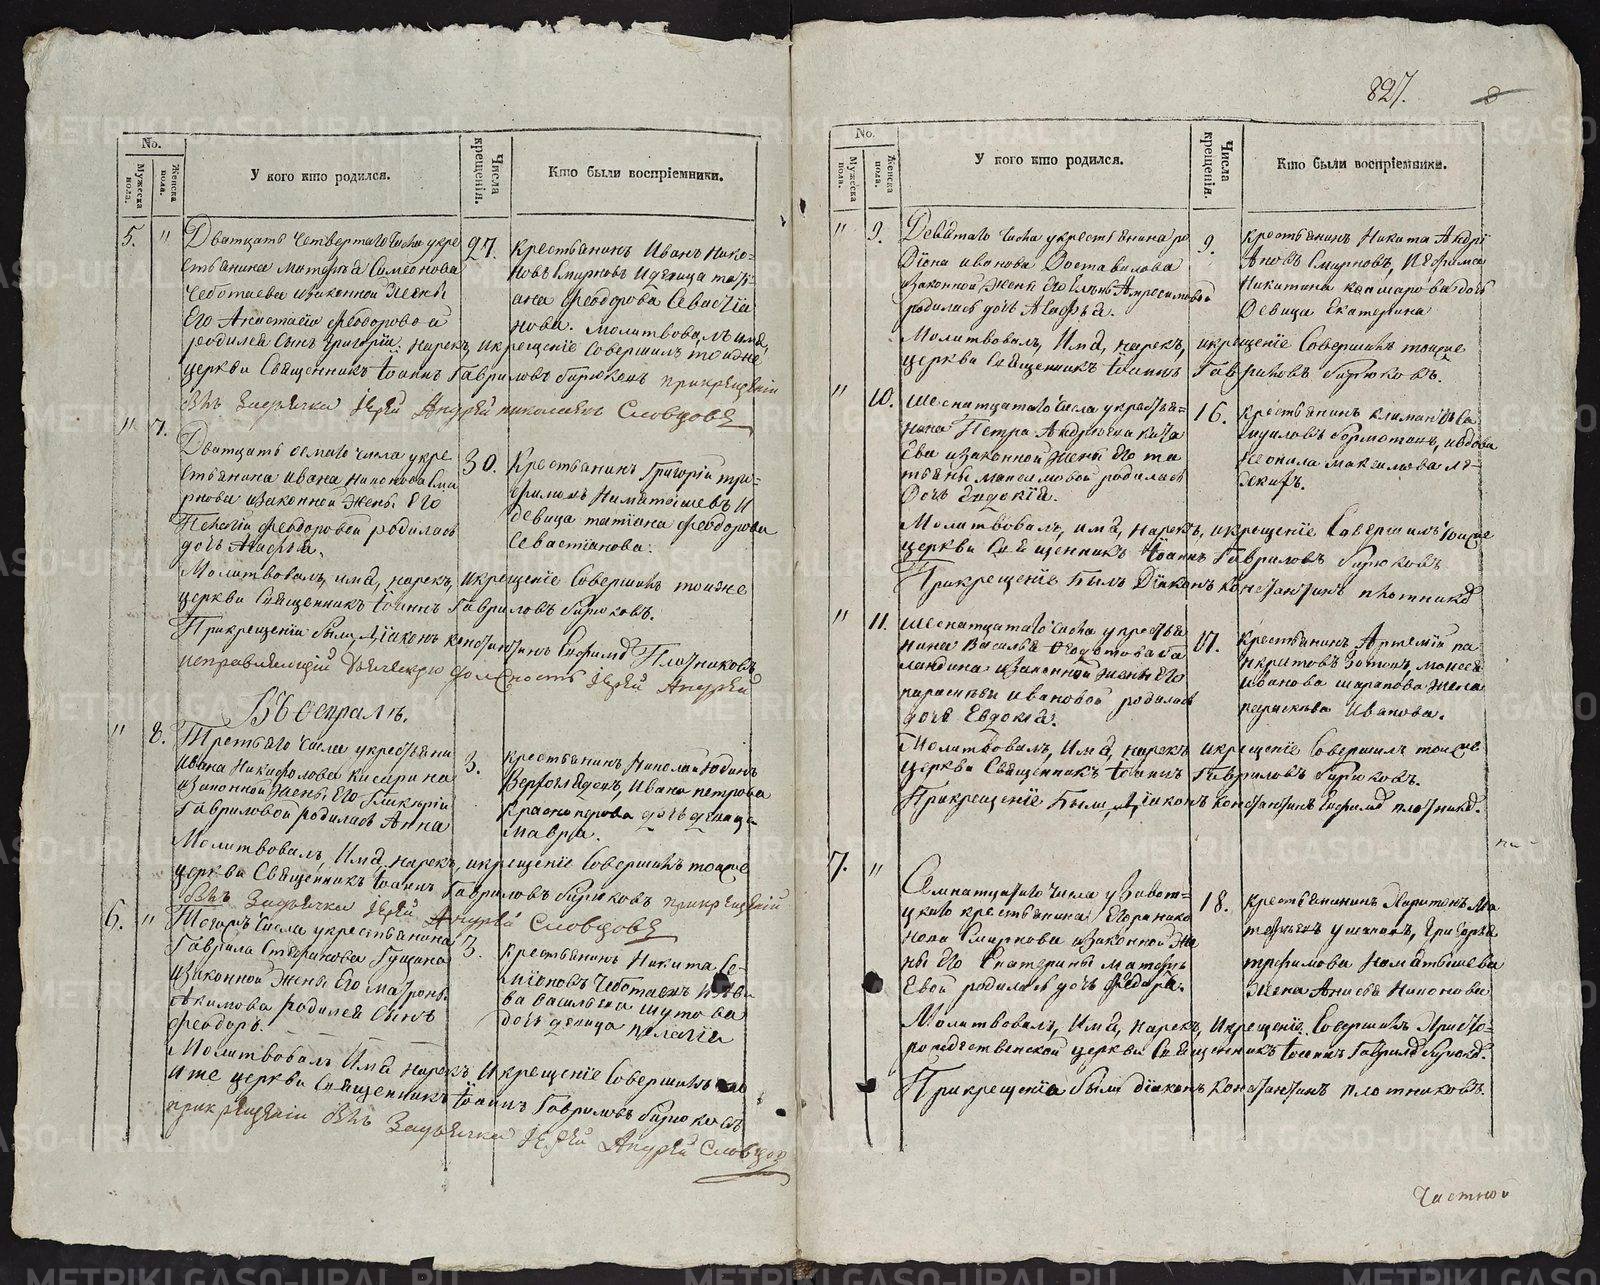 827.
No.
Мужеска пола.
Женска пола.
У кого кто родился.
Числа крещенія.
Кто были воспріемники.
5. "
Дватцать четвертаго числа укре
стьянина Матфѣа Симеонова
Чеботаева изаконной Жены
Его Анастасіи Феодоровой
родился Сынъ Григорій.
27.
крестьянинъ Иванъ Нико-
новъ Смирновъ идевица тати-
ана Феодорова Севастіа
нова.
Молитвовалъ имя, нарекъ, икрещеніе Совершилъ тоя же
церкви Священникъ Іоаннъ Гавриловъ Бирюковъ прикрещеніи
былъ Задьячка Іерей Андрей Николаевъ Словцовъ
" 7.
Дватцать седмаго числа укре
стьянина ивана Никонова Сми
рнова изаконной Жены Его
Пелагіи Феодоровой родилась
дочь Агафья.
30.
Крестьянинъ Григорій три-
филовъ Наматышевъ И
девица татіана Феодорова
Севастіанова.
Молитвовалъ, имя, нарекъ, икрещеніе Совершилъ тояже
церкви Священникъ Іоаннъ Гавриловъ Бирюковъ.
Прикрещеніи были, Діаконъ константинъ Плотниковъ
исправляющій дьяческую должность Іерей Андрей
Въ Февралѣ.
" 8.
Третьяго числа укрестьяни
ивана Никифорова
изаконной Жены Его Гликеріи
Гавриловой родилась Анна
3.
крестьянинъ Николай Юдинъ
Ивана петрова
Красноперова дочь девица
Мавра.
Молитвовалъ, Имя, нарекъ, икрещеніе Совершилъ тояже
церкви Священникъ Іоаннъ Гавриловъ Бирюковъ прикрещеніи
былъ Задьячка Іерей Андрей Словцовъ
6. "
Тогожъ числа укрестьянина
Гаврила Стефанова Гущина
изаконной Жены Его Матроны
Акимова родился Сынъ
Феодоръ.
3.
крестьянинъ Никита Се-
міоновъ Чеботаевъ
ва васильева шутова
дочь девица пелагія
Молитвовалъ Имя нарекъ Икрещеніе Совершилъ
церкви Священникъ Іоаннъ Гавриловъ Бирюковъ
прикрещеніи былъ Задьячка Іерей Андрей Словцов
No.
Мужеска пола.
Женска пола.
У кого кто родился.
Числа крещенія.
Кто были воспріемники.
" 9.
Девятаго числа укрестьянина ро
діона иванова Доставалова
изаконной Жены Его
родилась дочь Агафья.
9.
крестьянинъ Никита Андрі
ановъ Смирновъ, И Ефима
Никитина комарова дочь
Девица Екатерина
Молитвовалъ, Имя, нарекъ, икрещеніе Совершилъ тояже
церкви Священникъ Іоаннъ Гавриловъ Бирюковъ.
" 10.
шеснатцатаго числа укрестья-
нина Петра Андреева
изаконной Жены Его та
тьяны Максимовой родилась
Дочь Евдокія.
16.
крестьянинъ
ивдова
неонила максимова
Молитвовалъ, имя, нарекъ, икрещеніе Совершилъ тояже
церкви Священникъ Іоаннъ Гавриловъ Бирюковъ
Прикрещеніе Былъ Діаконъ константинъ плотниковъ
" 11.
шеснатцатаго числа укрестья
нина Василья Федотова ба
ландина изаконной Жены Его
параскевы ивановой родилась
дочь Евдокія.
17.
крестьянинъ Артемій па
нкратовъ Зотинъ, Мокея
иванова шарапова Жена
параскева Иванова.
Молитвовалъ, Имя, нарекъ икрещеніе Совершилъ тояже
церкви Священникъ Іоаннъ Гавриловъ Бирюковъ.
Прикрещеніе Были, Діаконъ константинъ плотниковъ.
7. "
числа узавот-
цкаго крестьянина Егора нико
нова Смирнова изаконной Же
ны Его Екатерины матфѣ
Евой родилась дочь Федора.
18.
крестьянинъ Харитонъ Ма
Григорья
трефилова Наматышева
Жена Анисья Никонова
Молитвовалъ, Имя, нарекъ, Икрещеніе, Совершилъ Христо-
рождественской церкви Священникъ Іоаннъ Гаврилов Бирюков.
Прикрещеніи были діаконъ константинъ плотниковъ.